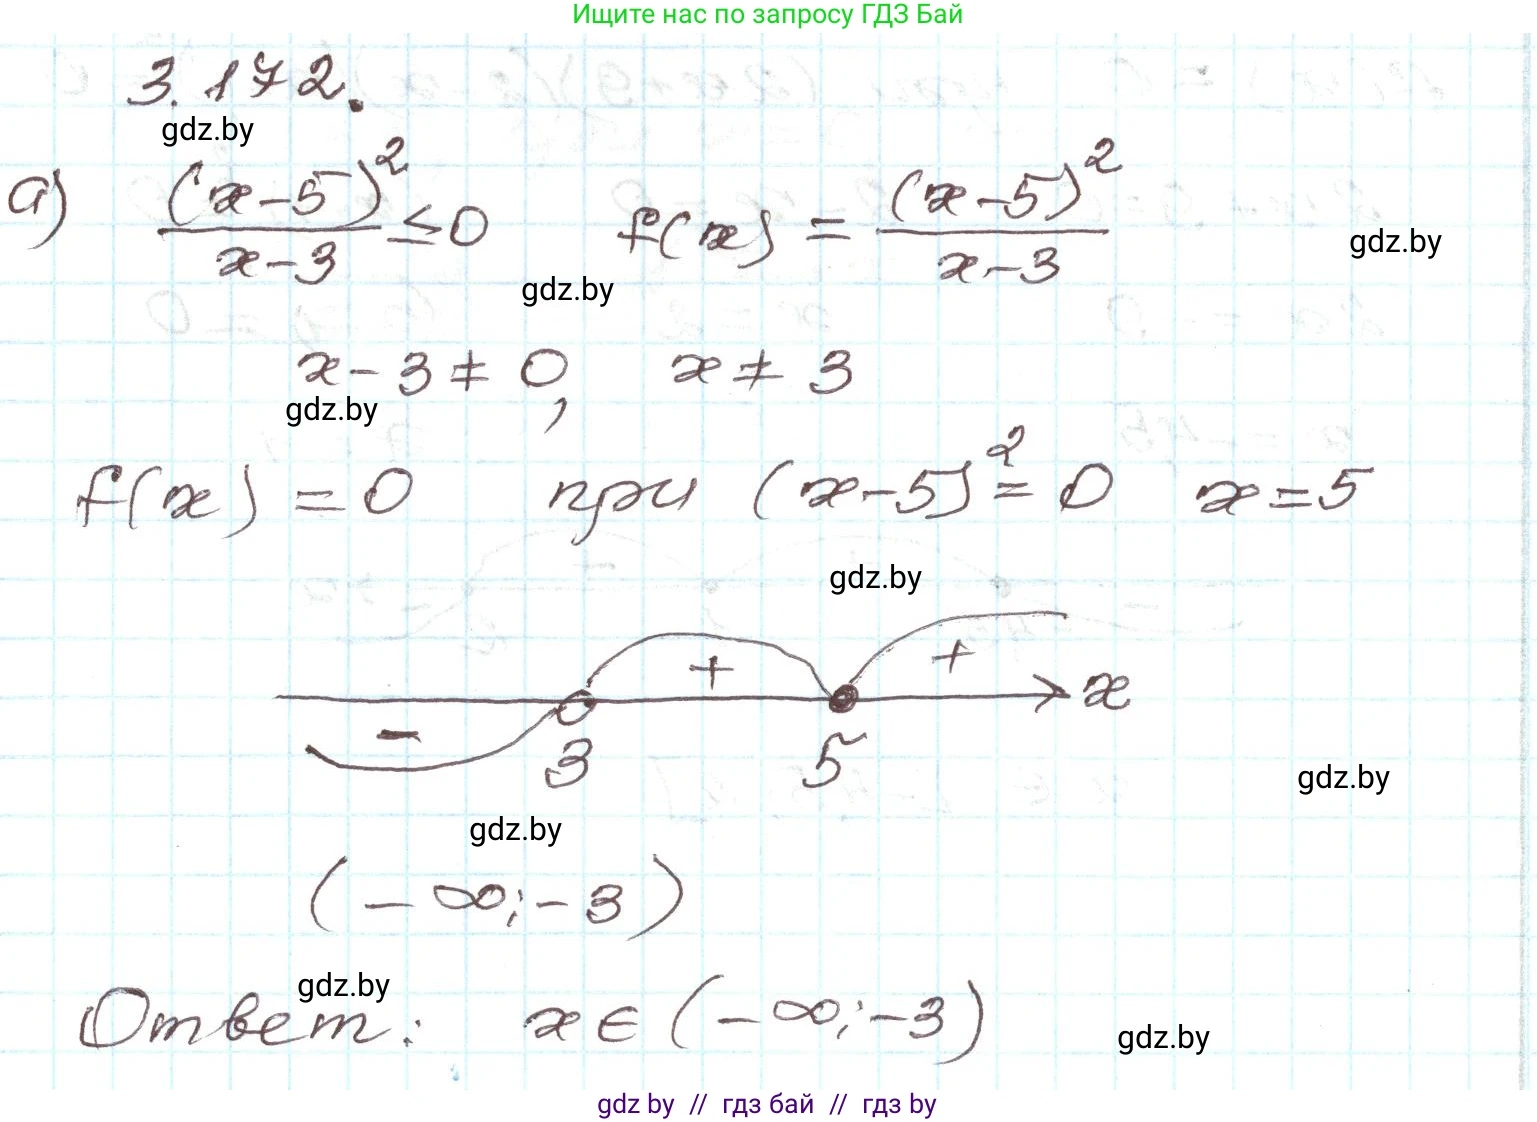 Ищите нас по запросу ГДЗ Бай
3.172.
gdz.by
а) (x-5)²/(x-3) ≤ 0 f(x) = (x-5)²/(x-3)
gdz.by
gdz.by
x-3≠0, x≠3
gdz.by
f(x)=0 при (x-5)²=0 x=5
gdz.by
- + + x
3 5
gdz.by
gdz.by
(-∞;-3)
gdz.by
Ответ: x∈(-∞;-3)
gdz.by
gdz by // гдз бай // гдз by